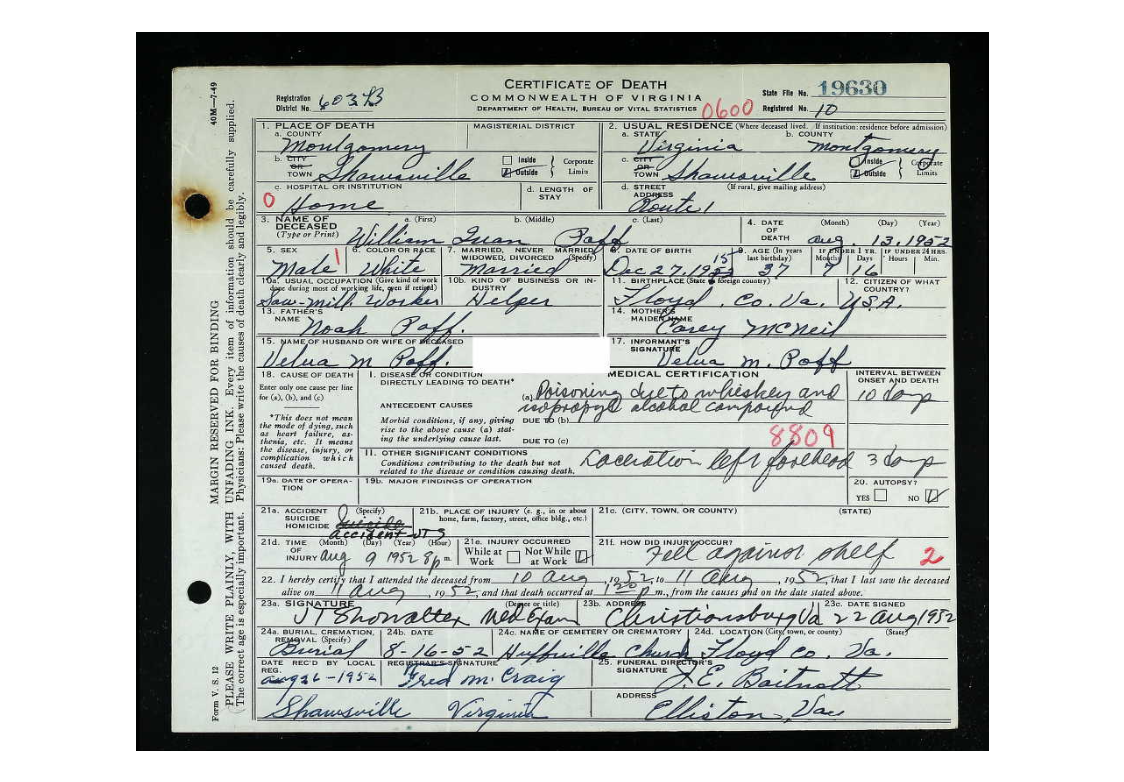 CERTIFICATE OF DEATH
COMMONWEALTH OF VIRGINIA
DEPARTMENT OF HEALTH, BUREAU OF VITAL STATISTICS
Registration District No. 603 B
0600
State File No. 19630
Registered No. 10
40M—7-49
MARGIN RESERVED FOR BINDING
PLEASE WRITE PLAINLY, WITH UNFADING INK. Every item of information should be carefully supplied.
The correct age is especially important. Physicians: Please write the causes of death clearly and legibly.
Form V. S. 12
1. PLACE OF DEATH
a. COUNTY Montgomery
MAGISTERIAL DISTRICT
2. USUAL RESIDENCE (Where deceased lived. If institution: residence before admission)
a. STATE Virginia
b. COUNTY Montgomery
b. CITY OR TOWN Shawsville
Inside Outside Corporate Limits
c. CITY OR TOWN Shawsville
Inside Outside Corporate Limits
c. HOSPITAL OR INSTITUTION
0 Home
d. LENGTH OF STAY
d. STREET ADDRESS (If rural, give mailing address)
Route 1
3. NAME OF DECEASED (Type or Print)
a. (First) b. (Middle) c. (Last)
William Iuan Poff
4. DATE OF DEATH (Month) (Day) (Year)
Aug. 13, 1952
5. SEX Male 1
6. COLOR OR RACE White
7. MARRIED, NEVER MARRIED, WIDOWED, DIVORCED (Specify) Married
8. DATE OF BIRTH Dec 27, 1952 15
9. AGE (In years last birthday) 37
IF UNDER 1 YR. Months 7 Days 16
IF UNDER 24 HRS. Hours Min.
10a. USUAL OCCUPATION (Give kind of work done during most of working life, even if retired) Saw-Mill Worker
10b. KIND OF BUSINESS OR INDUSTRY Helper
11. BIRTHPLACE (State or foreign country) Floyd, Co. Va.
12. CITIZEN OF WHAT COUNTRY? U.S.A.
13. FATHER'S NAME Noah Poff.
14. MOTHER'S MAIDEN NAME Corey McNeil
15. NAME OF HUSBAND OR WIFE OF DECEASED Velua M. Poff.
17. INFORMANT'S SIGNATURE Velua M. Poff
18. CAUSE OF DEATH
Enter only one cause per line for (a), (b), and (c)
*This does not mean the mode of dying, such as heart failure, asthenia, etc. It means the disease, injury, or complication which caused death.
MEDICAL CERTIFICATION
I. DISEASE OR CONDITION DIRECTLY LEADING TO DEATH*
(a) Poisoning due to whiskey and
isopropyl alcohol compound
INTERVAL BETWEEN ONSET AND DEATH
10 days
ANTECEDENT CAUSES
Morbid conditions, if any, giving rise to the above cause (a) stating the underlying cause last.
DUE TO (b)
DUE TO (c)
8809
II. OTHER SIGNIFICANT CONDITIONS
Conditions contributing to the death but not related to the disease or condition causing death.
Laceration left forehead 3 days
19a. DATE OF OPERATION
19b. MAJOR FINDINGS OF OPERATION
20. AUTOPSY?
YES NO
21a. ACCIDENT SUICIDE HOMICIDE (Specify)
Suicide
accident JTS
21b. PLACE OF INJURY (e. g., in or about home, farm, factory, street, office bldg., etc.)
21c. (CITY, TOWN, OR COUNTY) (STATE)
21d. TIME OF INJURY (Month) (Day) (Year) (Hour)
Aug 9 1952 8p m.
21e. INJURY OCCURRED
While at Work Not While at Work
21f. HOW DID INJURY OCCUR?
Fell against shelf 2
22. I hereby certify that I attended the deceased from 10 Aug, 1952, to 11 Aug, 1952, that I last saw the deceased
alive on 11 Aug, 1952, and that death occurred at 1:20 p m., from the causes and on the date stated above.
23a. SIGNATURE (Degree or title) JT Showalter Med Exam
23b. ADDRESS Christiansburg Va
23c. DATE SIGNED 22 Aug 1952
24a. BURIAL, CREMATION, REMOVAL (Specify) Burial
24b. DATE 8-16-52
24c. NAME OF CEMETERY OR CREMATORY Huffville Church
24d. LOCATION (City, town, or county) (State) Floyd Co. Va.
DATE REC'D BY LOCAL REG. Aug 26-1952
REGISTRAR'S SIGNATURE Fred M. Craig
25. FUNERAL DIRECTOR'S SIGNATURE J. E. Boitnott
Shawsville Virginia
ADDRESS Elliston, Va